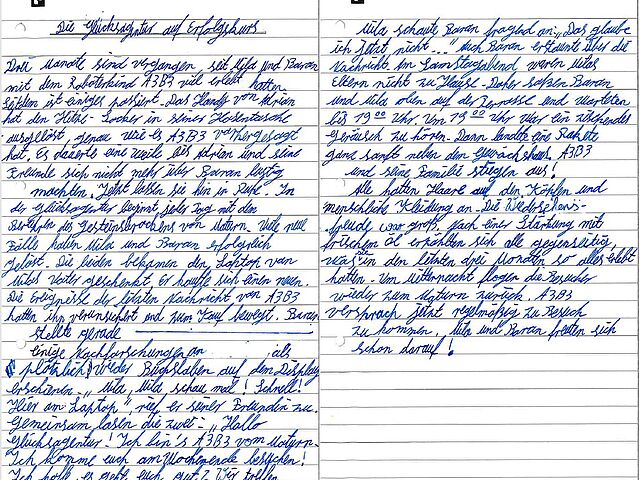 Die Glücksagentur auf Erfolgskurs
Drei Monate sind vergangen seit Mila und Baran
mit dem Roboterkind A3B3 viel erlebt hatten.
Seitdem ist einiges passiert. Das Handy von Adrian
hat den Hitze-Locher in seiner Hosentasche
ausgelöst, genau wie es A3B3 vorhergesagt
hat. Es dauerte eine weile bis Adrian und seine
Freunde sich nicht mehr über Baran lustig
machten. Jetzt lassen sie ihn in Ruhe. In
der Glücksagentur beginnt jeder Tag mit den
des Gesteinsbrockens vom Saturn. Viele neue
Fälle haben Mila und Baran erfolgreich
gelöst. Die beiden bekamen den Laptop von
Milas Vater geschenkt. Er kaufte sich einen neuen.
Die Ereignisse der letzten Nachricht von A3B3
hatten ihn verunsichert und zum Kauf bewegt. Baran
stellte gerade
einige Nachforschungen an als
plötzlich wieder Buchstaben auf dem Display
erschienen. „Mila, Mila schau mal! Schnell!
Hier am Laptop" rief er seiner Freundin zu.
Gemeinsam lasen die zwei: „Hallo
Glücksagentur! Ich bin's A3B3 vom Saturn.
Ich komme euch am Wochenende besuchen!
Ich hoffe es geht euch gut? Wir
Mila schaute Baran fragend an: „Das glaube
ich jetzt nicht..." Auch Baran erstaunt über die
Nachricht. Am Samstagabend waren Milas
Eltern nicht zu Hause. Daher saßen Baran
und Mila oben auf der Terrasse und warteten
bis 19 00 Uhr. Um 19 00 Uhr war ein zischendes
Geräusch zu hören. Dann landete eine Rakete
ganz sanft neben dem Gewächshaus. A3B3
und seine Familie stiegen aus!
Alle hatten Haare auf den Köpfen und
menschliche Kleidung an. Die Wiedersehens-
freude war groß. Nach einer Stärkung mit
frischem Öl erzählten sich alle gegenseitig,
was sie in den letzten drei Monaten so alles erlebt
hatten. Um Mitternacht flogen die Besucher
wieder zum Saturn zurück. A3B3
versprach jetzt regelmäßig zu Besuch
zu kommen. Mila und Baran freuten sich
schon darauf!